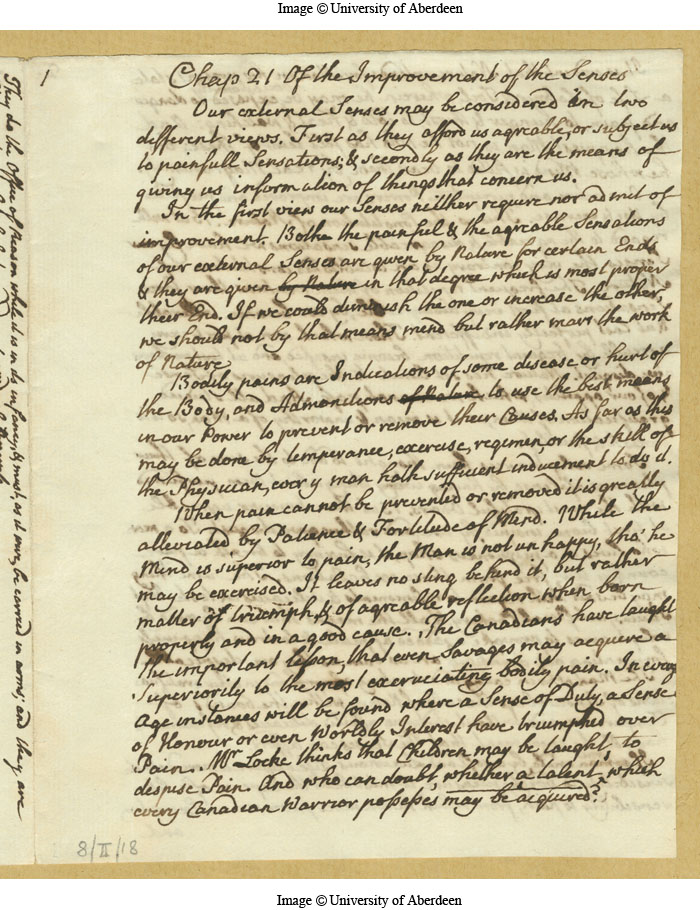 Image © University of Aberdeen
1
Chap 21 Of the Improvement of the Senses
Our external Senses may be considered in two
different views. First as they afford us agreable, or subject us
to painfull Sensations; & secondly as they are the means of
giving us information of things that concern us.
In the first view our Senses neither require nor admit of
improvement. Bothe the painful & the agreable Sensations
of our external Senses are given by Nature for certain Ends
& they are given by Nature in that degree which is most proper
their End. If we could diminish the one or increase the other,
we should not by that means mend but rather marr the work
of Nature
Bodily pains are Indications of some disease or hurt of
the Body, and Admonitions of Nature to use the best means
in our Power to prevent or remove their Causes. As far as this
may be done by temperance, exercise, regimen, or the skill of
the Physician, every man hath sufficient inducement to do it.
When pain cannot be prevented or removed it is greatly
alleviated by Patience & Fortitude of Mind. While the
Mind is superior to pain, the Man is not unhappy, tho' he
may be exercised. It leaves no sting behind it, but rather
matter of triumph, & of agreable reflection when born
properly and in a good cause. The Canadians have taught
the important lesson, that even Savages may acquire a
Superiority to the most excruciating bodily pain. In every
Age instances will be found where a Sense of Duty, a Sense
of Honour or even Worldly Interest have triumphed over
Pain. Mr Locke thinks that Children may be taught, to
despise Pain. And who can doubt, whether a talent, which
every Canadian Warrior possesses may be acquired?
They do the Office of Reason while it is in its infancy, & must, as it were, be carried in arms; and they are
8/II/18
Image © University of Aberdeen